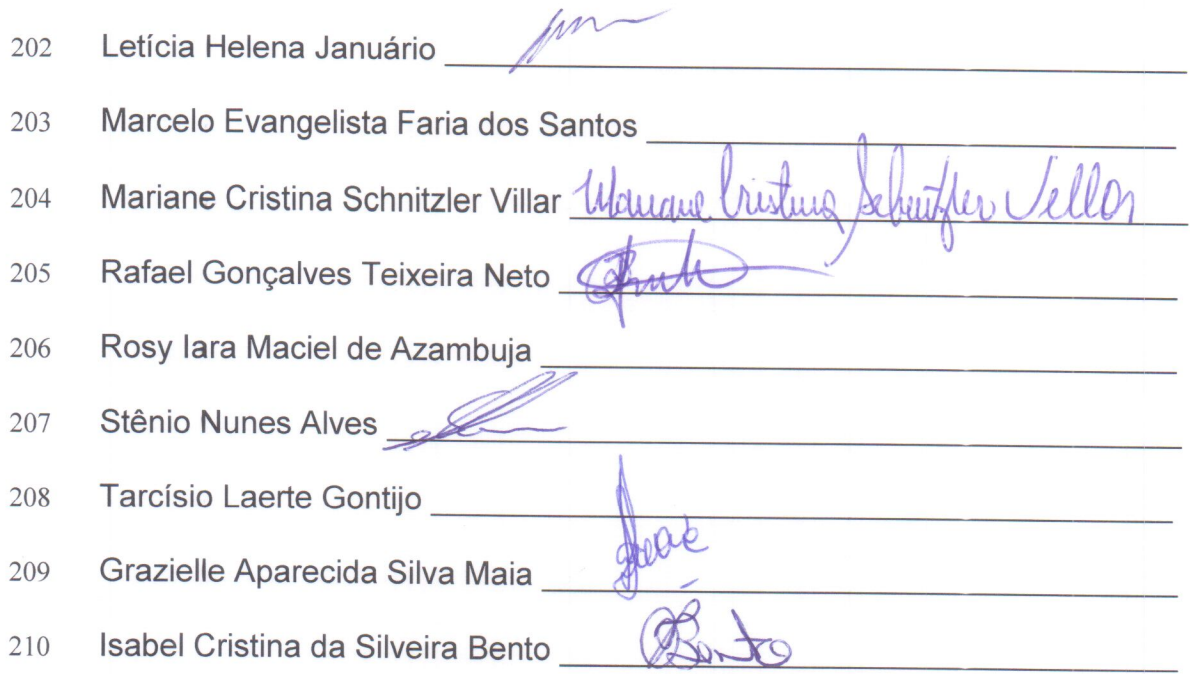 202 Letícia Helena Januário
203 Marcelo Evangelista Faria dos Santos
204 Mariane Cristina Schnitzler Villar Mariane Cristina Schnitzler Villar
205 Rafael Gonçalves Teixeira Neto
206 Rosy Iara Maciel de Azambuja
207 Stênio Nunes Alves
208 Tarcísio Laerte Gontijo
209 Grazielle Aparecida Silva Maia
210 Isabel Cristina da Silveira Bento Bento